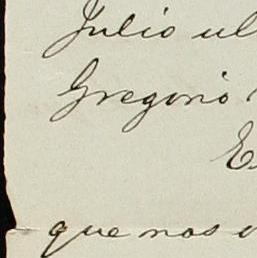 Julio ul
Gregorio
E
que nos